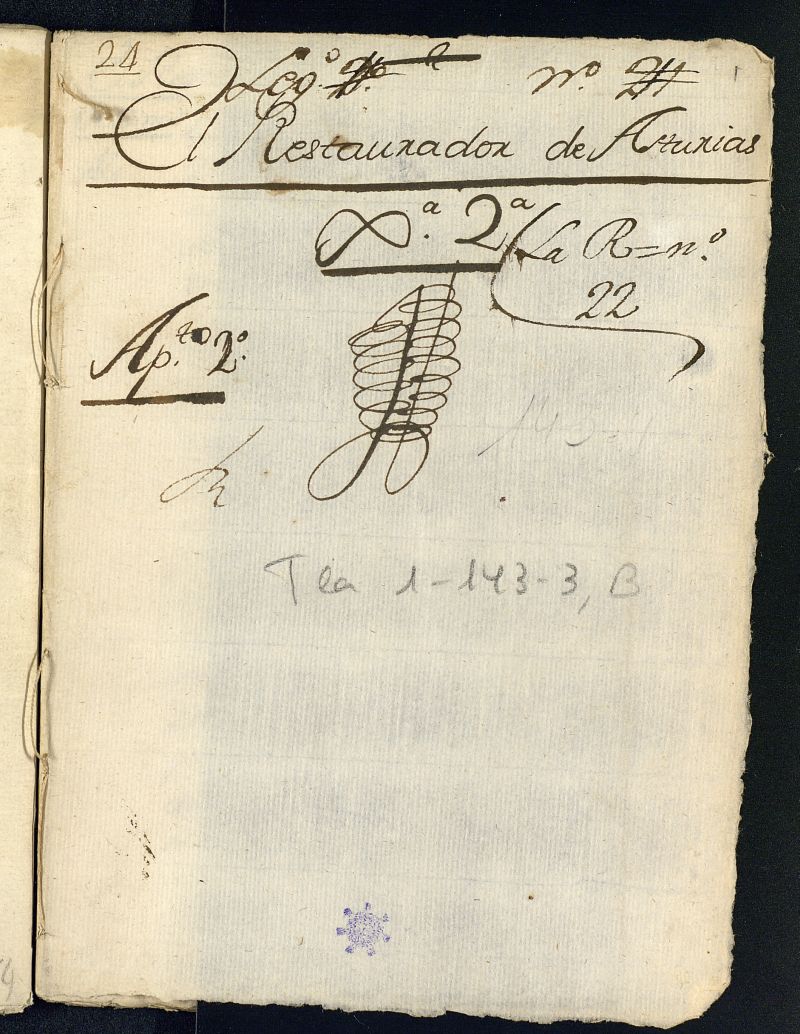 24
Leg.º nº 24
El Restaurador de Asturias
Xª. 2ª
La R=nº.
22
Ap.to 2º.
Tea 1-143-3, B